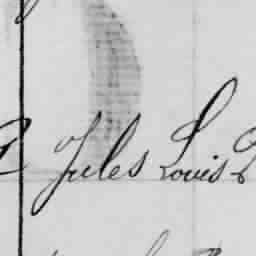 Jules Louis